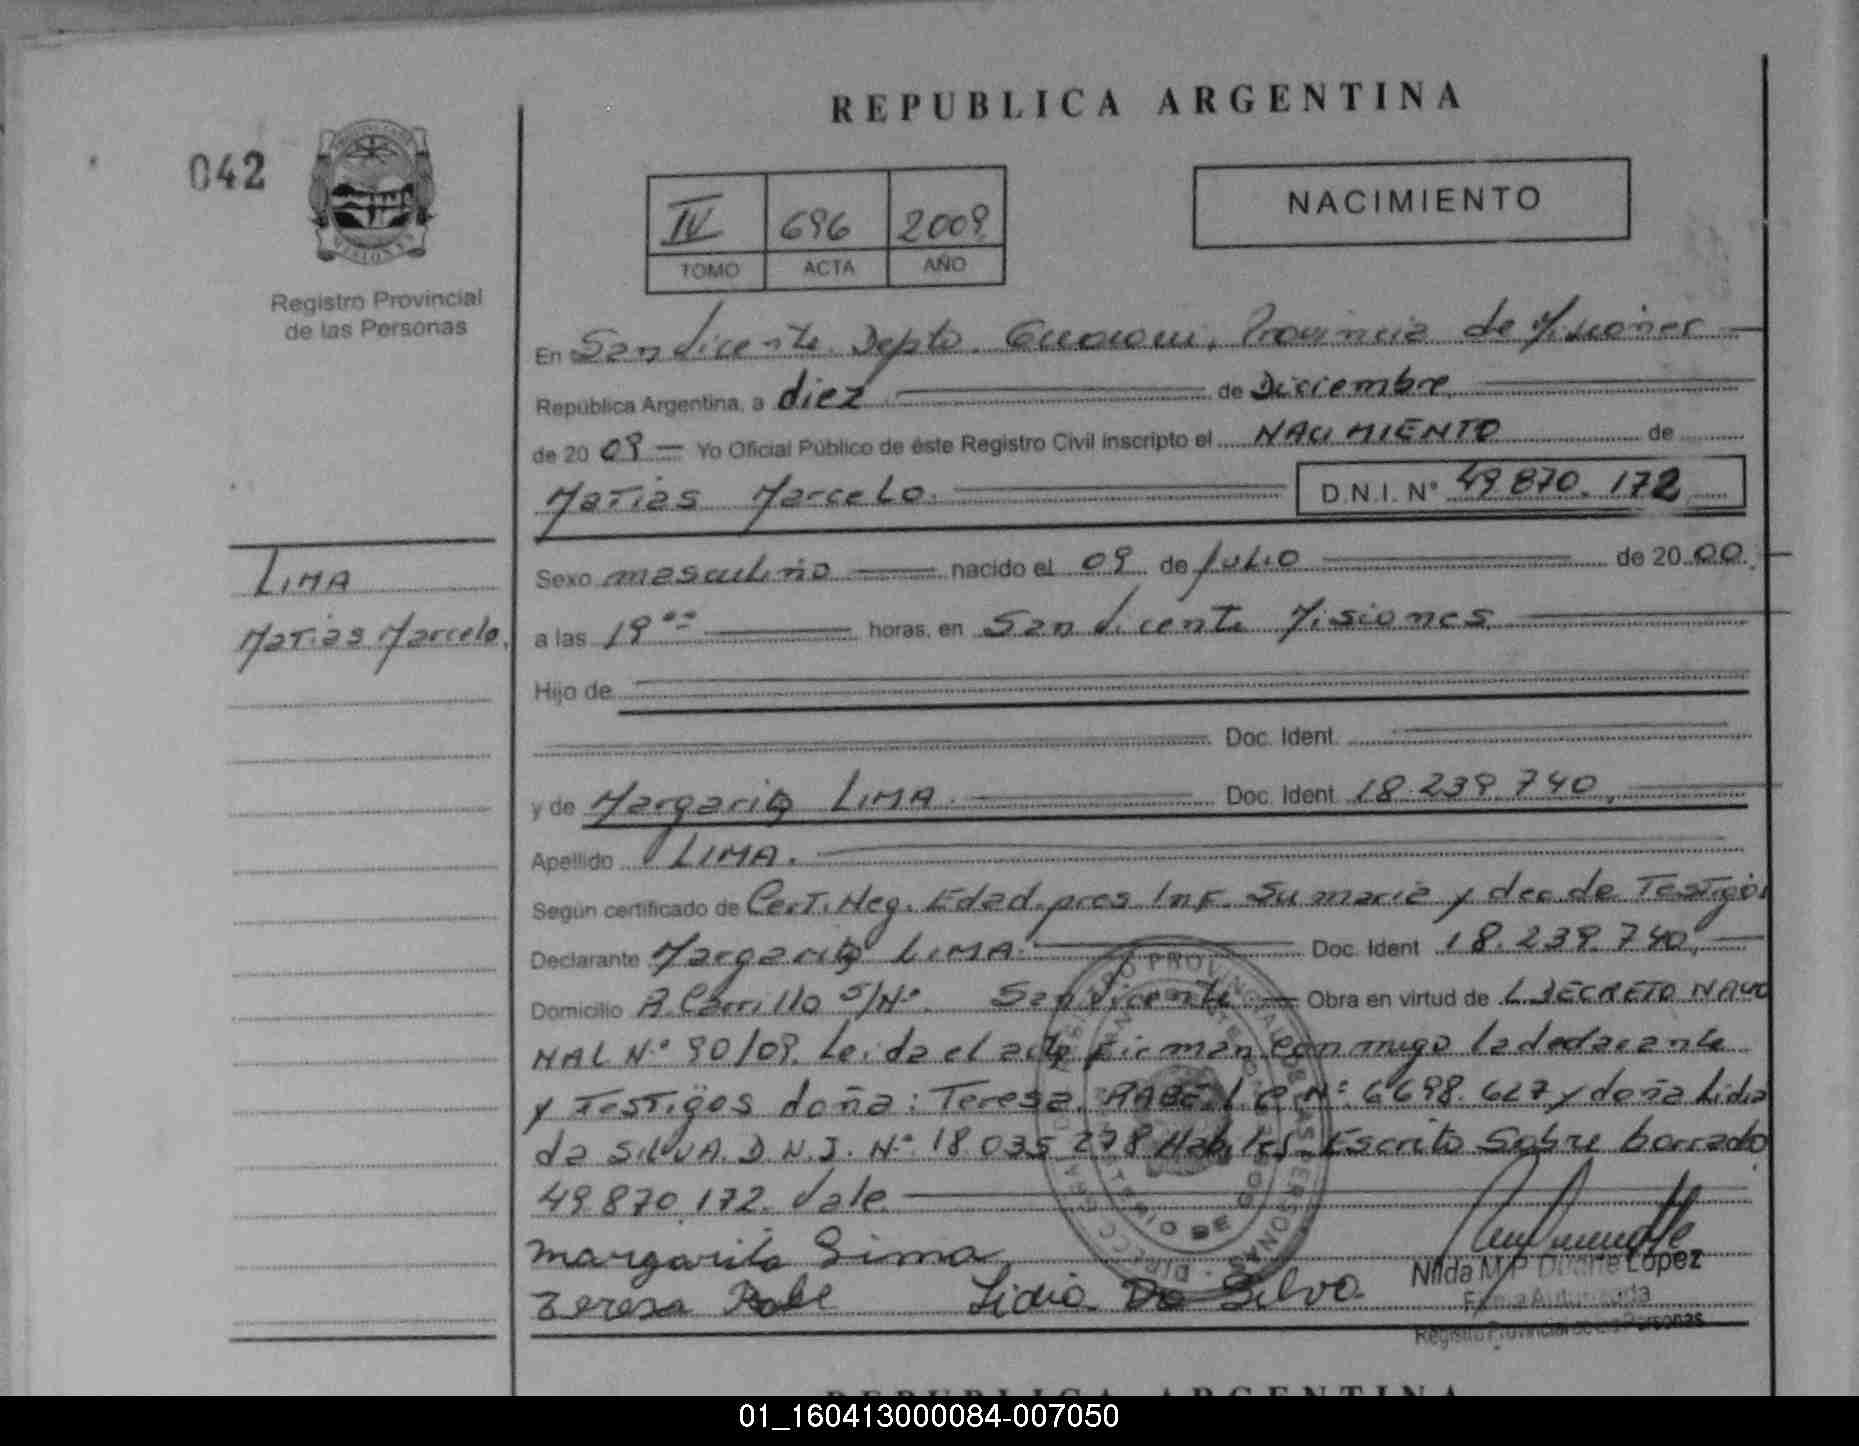 REPUBLICA ARGENTINA
042
MISIONES
Registro Provincial
de las Personas
IV 696 2009
TOMO ACTA AÑO
NACIMIENTO
En San Vicente Depto. Guaraní, Provincia de Misiones
República Argentina, a diez de Diciembre
de 20 09 Yo Oficial Público de éste Registro Civil inscripto el NACIMIENTO de
Matias Marcelo. D.N.I. N° 49.870.172
LIMA
Matias Marcelo.
Sexo masculino nacido el 09 de Julio de 20 00.
a las 19 horas, en San Vicente Misiones
Hijo de
Doc. Ident.
y de Margarita LIMA. Doc. Ident. 18.239.740,
Apellido LIMA.
Según certificado de Cert. Neg. Edad. pres Inf. Sumaria y dec. de Testigos
Declarante Margarita LIMA. Doc. Ident 18.239.740,
Domicilio R. Carrillo S/N°. San Vicente Obra en virtud de L DECRETO NACIO
NAL N° 90/09. Leida el acta firman conmigo la declarante
y Testigos doña: Teresa RABE L.C. N° 6.698.627 y doña Lidia
da SILVA. D.N.I. N° 18.035.278 Habiles. Escrito Sobre borrado
49.870.172. Vale.
Margarita Lima
Teresa Rabe Lidia Da Silva
Nilda M.P. Duarte López
Firma Autorizada
Registro Provincial de las Personas
REPUBLICA ARGENTINA
01_160413000084-007050